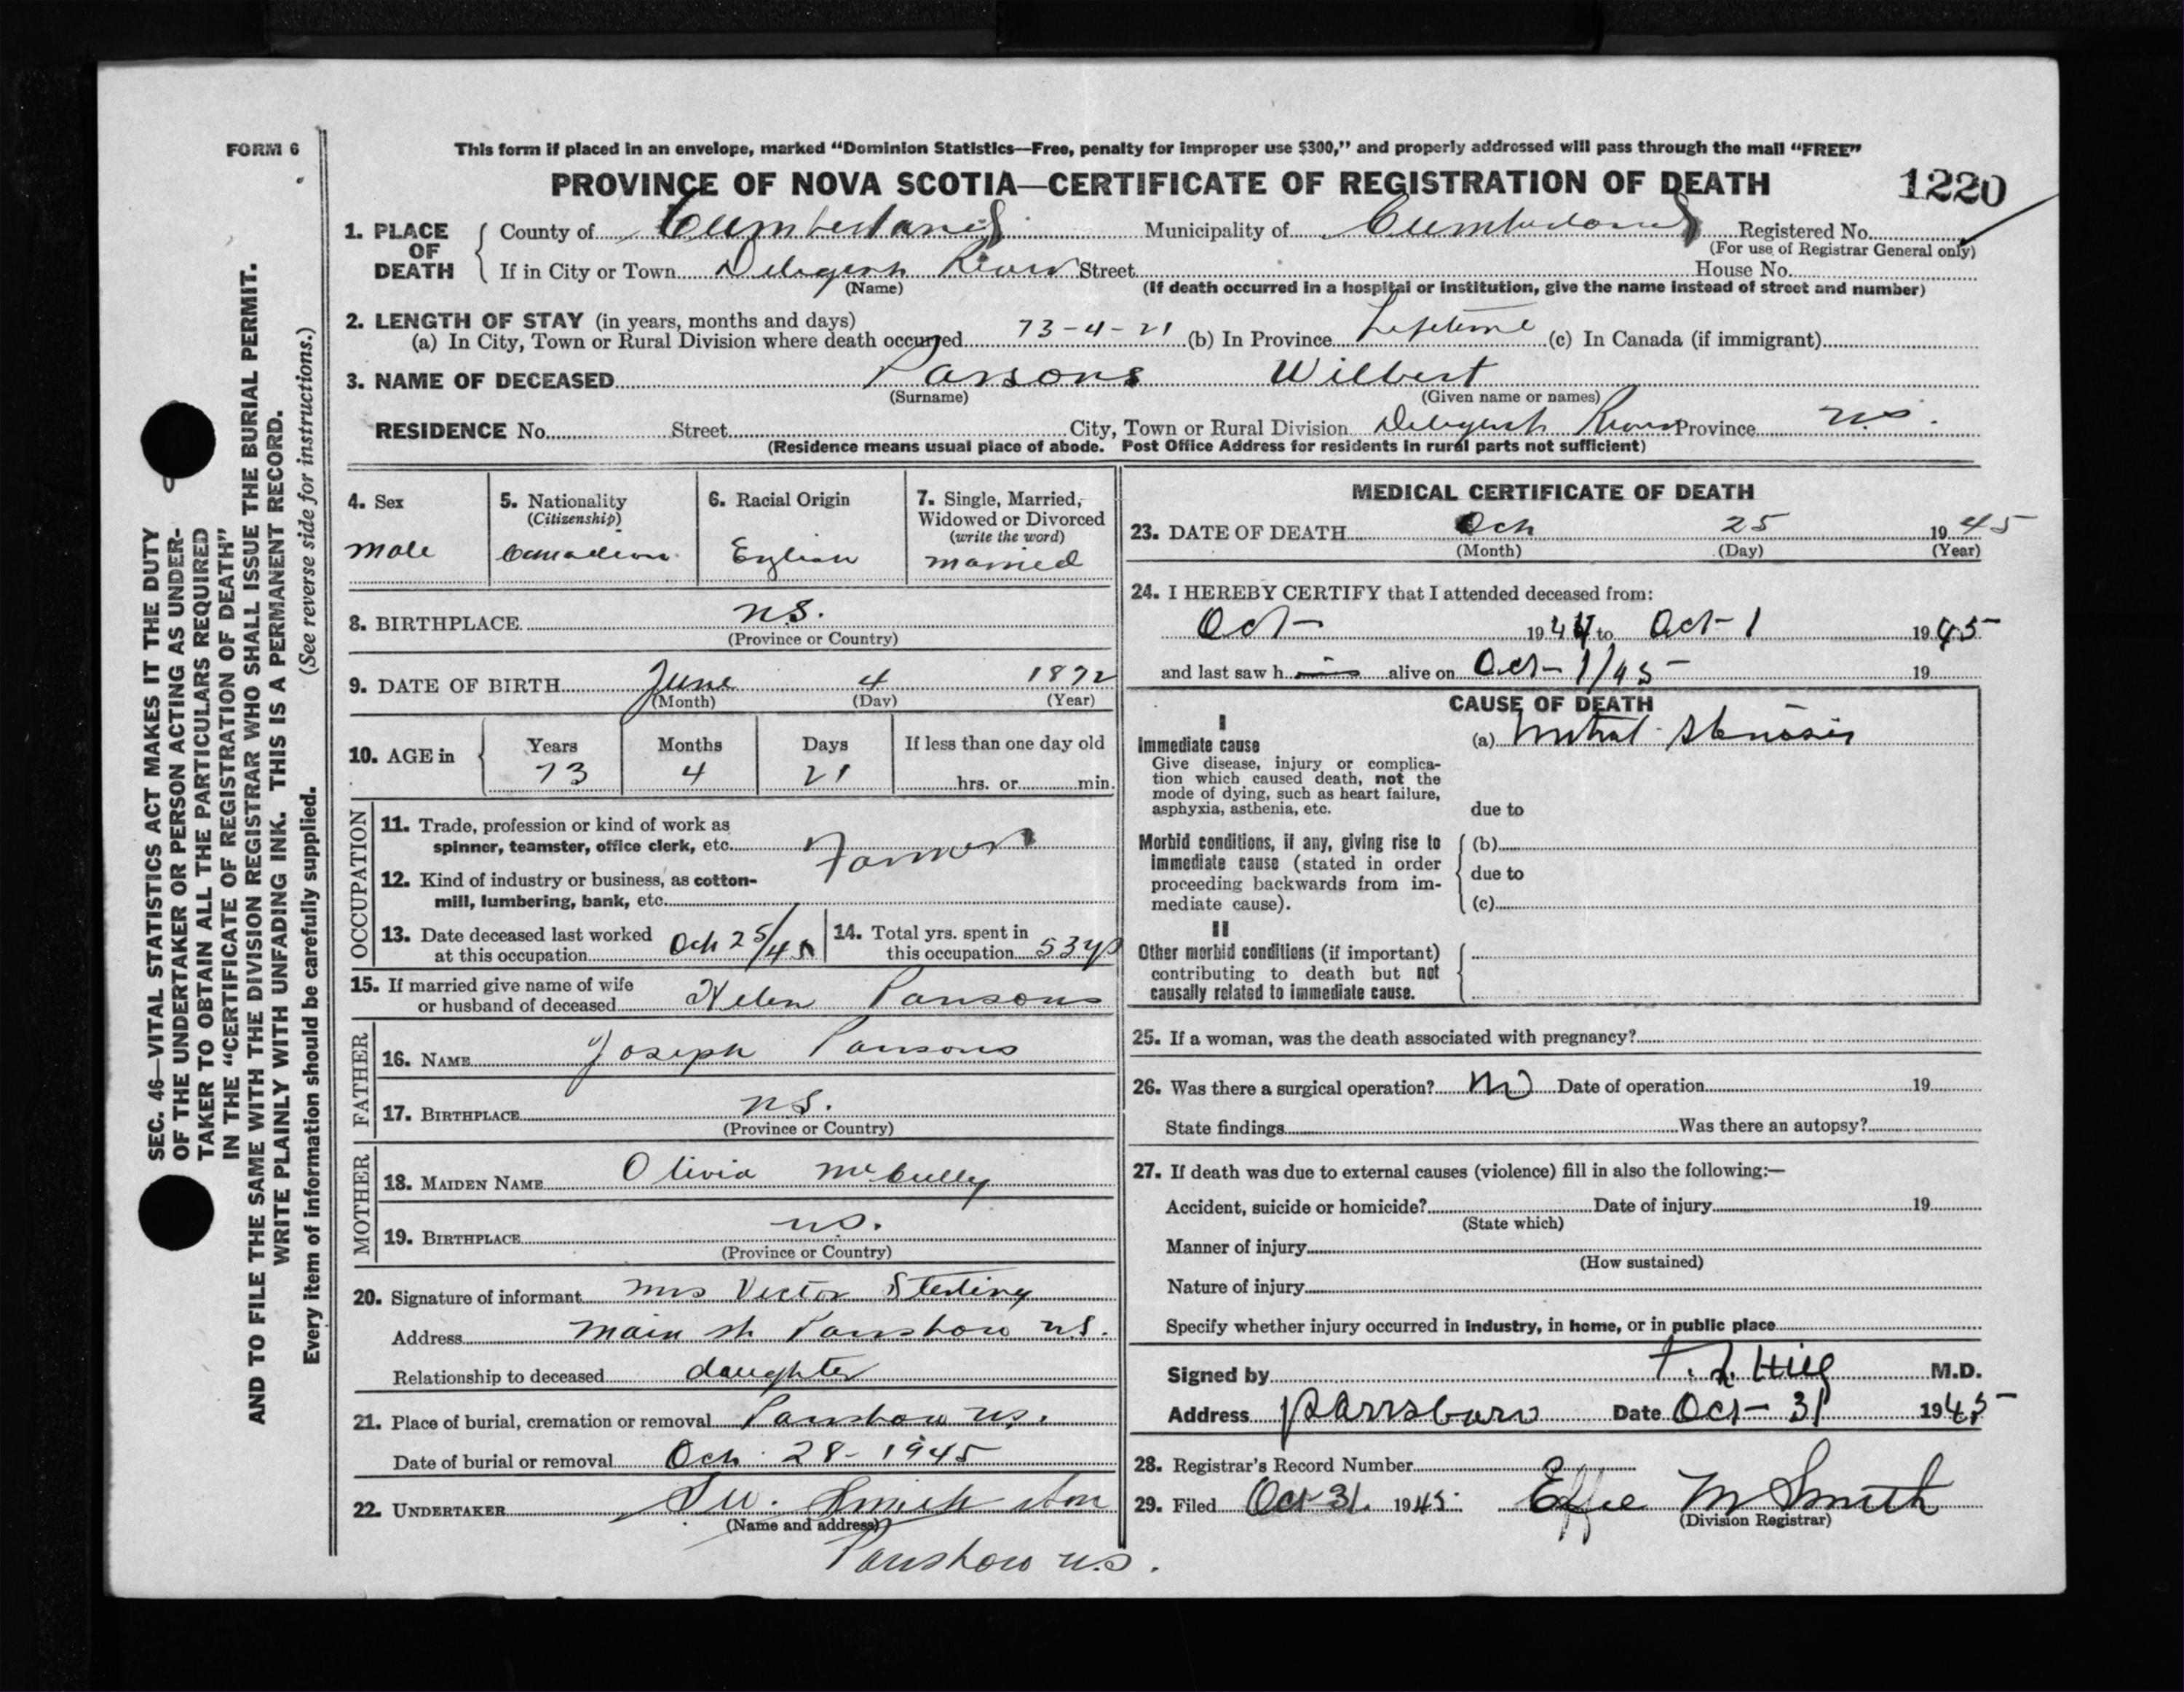 FORM 6
This form if placed in an envelope, marked "Dominion Statistics—Free, penalty for improper use $300," and properly addressed will pass through the mail "FREE"
PROVINCE OF NOVA SCOTIA—CERTIFICATE OF REGISTRATION OF DEATH
1220
1. PLACE OF DEATH
County of Cumberland Municipality of Cumberland Registered No.
(For use of Registrar General only)
If in City or Town Deligent River Street House No.
(Name) (If death occurred in a hospital or institution, give the name instead of street and number)
2. LENGTH OF STAY (in years, months and days)
(a) In City, Town or Rural Division where death occurred 73-4-21 (b) In Province Lifetime (c) In Canada (if immigrant)
3. NAME OF DECEASED Parsons Wilbert
(Surname) (Given name or names)
RESIDENCE No. Street City, Town or Rural Division Deligent River Province N.S.
(Residence means usual place of abode. Post Office Address for residents in rural parts not sufficient)
4. Sex
male
5. Nationality
(Citizenship)
Canadian
6. Racial Origin
English
7. Single, Married,
Widowed or Divorced
(write the word)
married
8. BIRTHPLACE N.S.
(Province or Country)
9. DATE OF BIRTH June 4 1872
(Month) (Day) (Year)
10. AGE in
Years Months Days If less than one day old
73 4 21 hrs. or min.
OCCUPATION
11. Trade, profession or kind of work as
spinner, teamster, office clerk, etc. Farmer
12. Kind of industry or business, as cotton-
mill, lumbering, bank, etc.
13. Date deceased last worked
at this occupation Oct 25/45
14. Total yrs. spent in
this occupation 53 yrs
15. If married give name of wife
or husband of deceased Helen Parsons
FATHER
16. NAME Joseph Parsons
17. BIRTHPLACE N.S.
(Province or Country)
MOTHER
18. MAIDEN NAME Olivia McCully
19. BIRTHPLACE N.S.
(Province or Country)
20. Signature of informant Mrs Victor Sterling
Address Main St Parrsboro N.S.
Relationship to deceased daughter
21. Place of burial, cremation or removal Parrsboro N.S.
Date of burial or removal Oct 28-1945
22. UNDERTAKER Smith & Son
(Name and address)
Parrsboro N.S.
MEDICAL CERTIFICATE OF DEATH
23. DATE OF DEATH Oct 25 1945
(Month) (Day) (Year)
24. I HEREBY CERTIFY that I attended deceased from:
Oct 1944 to Oct 1 1945
and last saw him alive on Oct 1/45 19
CAUSE OF DEATH
I
Immediate cause
Give disease, injury or complica-
tion which caused death, not the
mode of dying, such as heart failure,
asphyxia, asthenia, etc.
(a) Mitral Stenosis
due to
Morbid conditions, if any, giving rise to
immediate cause (stated in order
proceeding backwards from im-
mediate cause).
(b)
due to
(c)
II
Other morbid conditions (if important)
contributing to death but not
causally related to immediate cause.
25. If a woman, was the death associated with pregnancy?
26. Was there a surgical operation? No Date of operation 19
State findings Was there an autopsy?
27. If death was due to external causes (violence) fill in also the following:—
Accident, suicide or homicide? Date of injury 19
(State which)
Manner of injury
(How sustained)
Nature of injury
Specify whether injury occurred in industry, in home, or in public place
Signed by Hill M.D.
Address Parrsboro Date Oct 31 1945
28. Registrar's Record Number
29. Filed Oct 31 1945 Effie M Smith
(Division Registrar)
SEC. 46—VITAL STATISTICS ACT MAKES IT THE DUTY
OF THE UNDERTAKER OR PERSON ACTING AS UNDER-
TAKER TO OBTAIN ALL THE PARTICULARS REQUIRED
IN THE "CERTIFICATE OF REGISTRATION OF DEATH"
AND TO FILE THE SAME WITH THE DIVISION REGISTRAR WHO SHALL ISSUE THE BURIAL PERMIT.
WRITE PLAINLY WITH UNFADING INK. THIS IS A PERMANENT RECORD.
Every item of information should be carefully supplied. (See reverse side for instructions.)